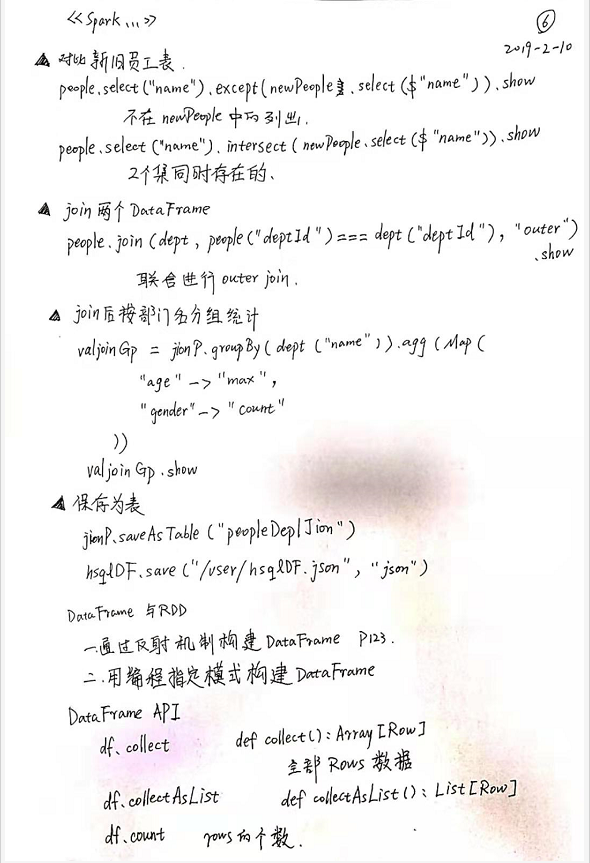 《Spark...》
⑥
2019-2-10
对比新旧员工表.
people.select("name").except(newPeople.select($"name")).show
不在newPeople中的列出.
people.select("name").intersect(newPeople.select($"name")).show
2个集同时存在的.
join两个DataFrame
people.join(dept, people("deptId")===dept("deptId"), "outer")
.show
联合进行outer join.
join后按部门名分组统计
valjoinGp = jionP.groupBy(dept("name")).agg(Map(
"age"->"max",
"gender"->"count"
))
valjoinGp.show
保存为表
jionP.saveAsTable("peopleDeptJion")
hsqlDF.save("/user/hsqlDF.json", "json")
DataFrame 与RDD
一.通过反射机制构建DataFrame P123.
二.用编程指定模式构建DataFrame
DataFrame API
df.collect def collect():Array[Row]
全部Rows数据
df.collectAsList def collectAsList():List[Row]
df.count rows的个数.